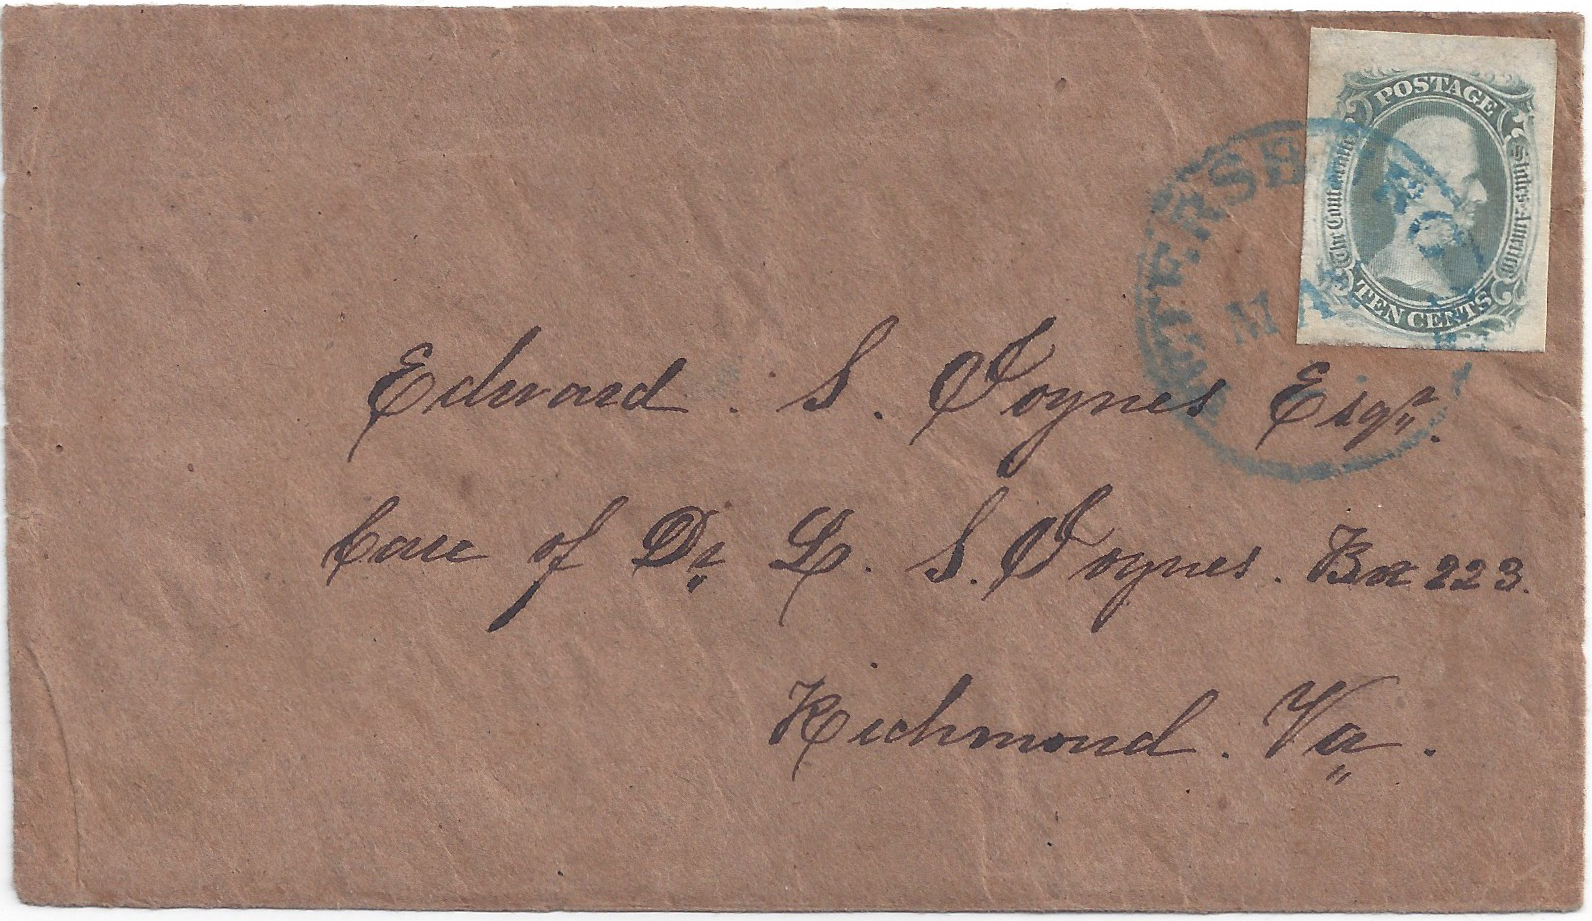 POSTAGE
The Confederate States of America
TEN CENTS
Edward . S. Joynes Esqr.
Care of Dr L. S. Joynes . Box 223.
Richmond . Va .